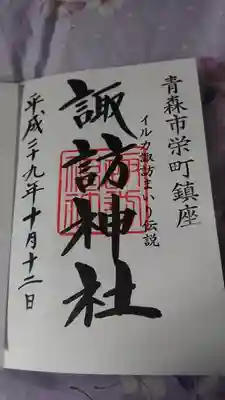 青森市栄町鎮座
イルカ諏訪まいり伝説
諏訪神社
平成二十九年十月十二日